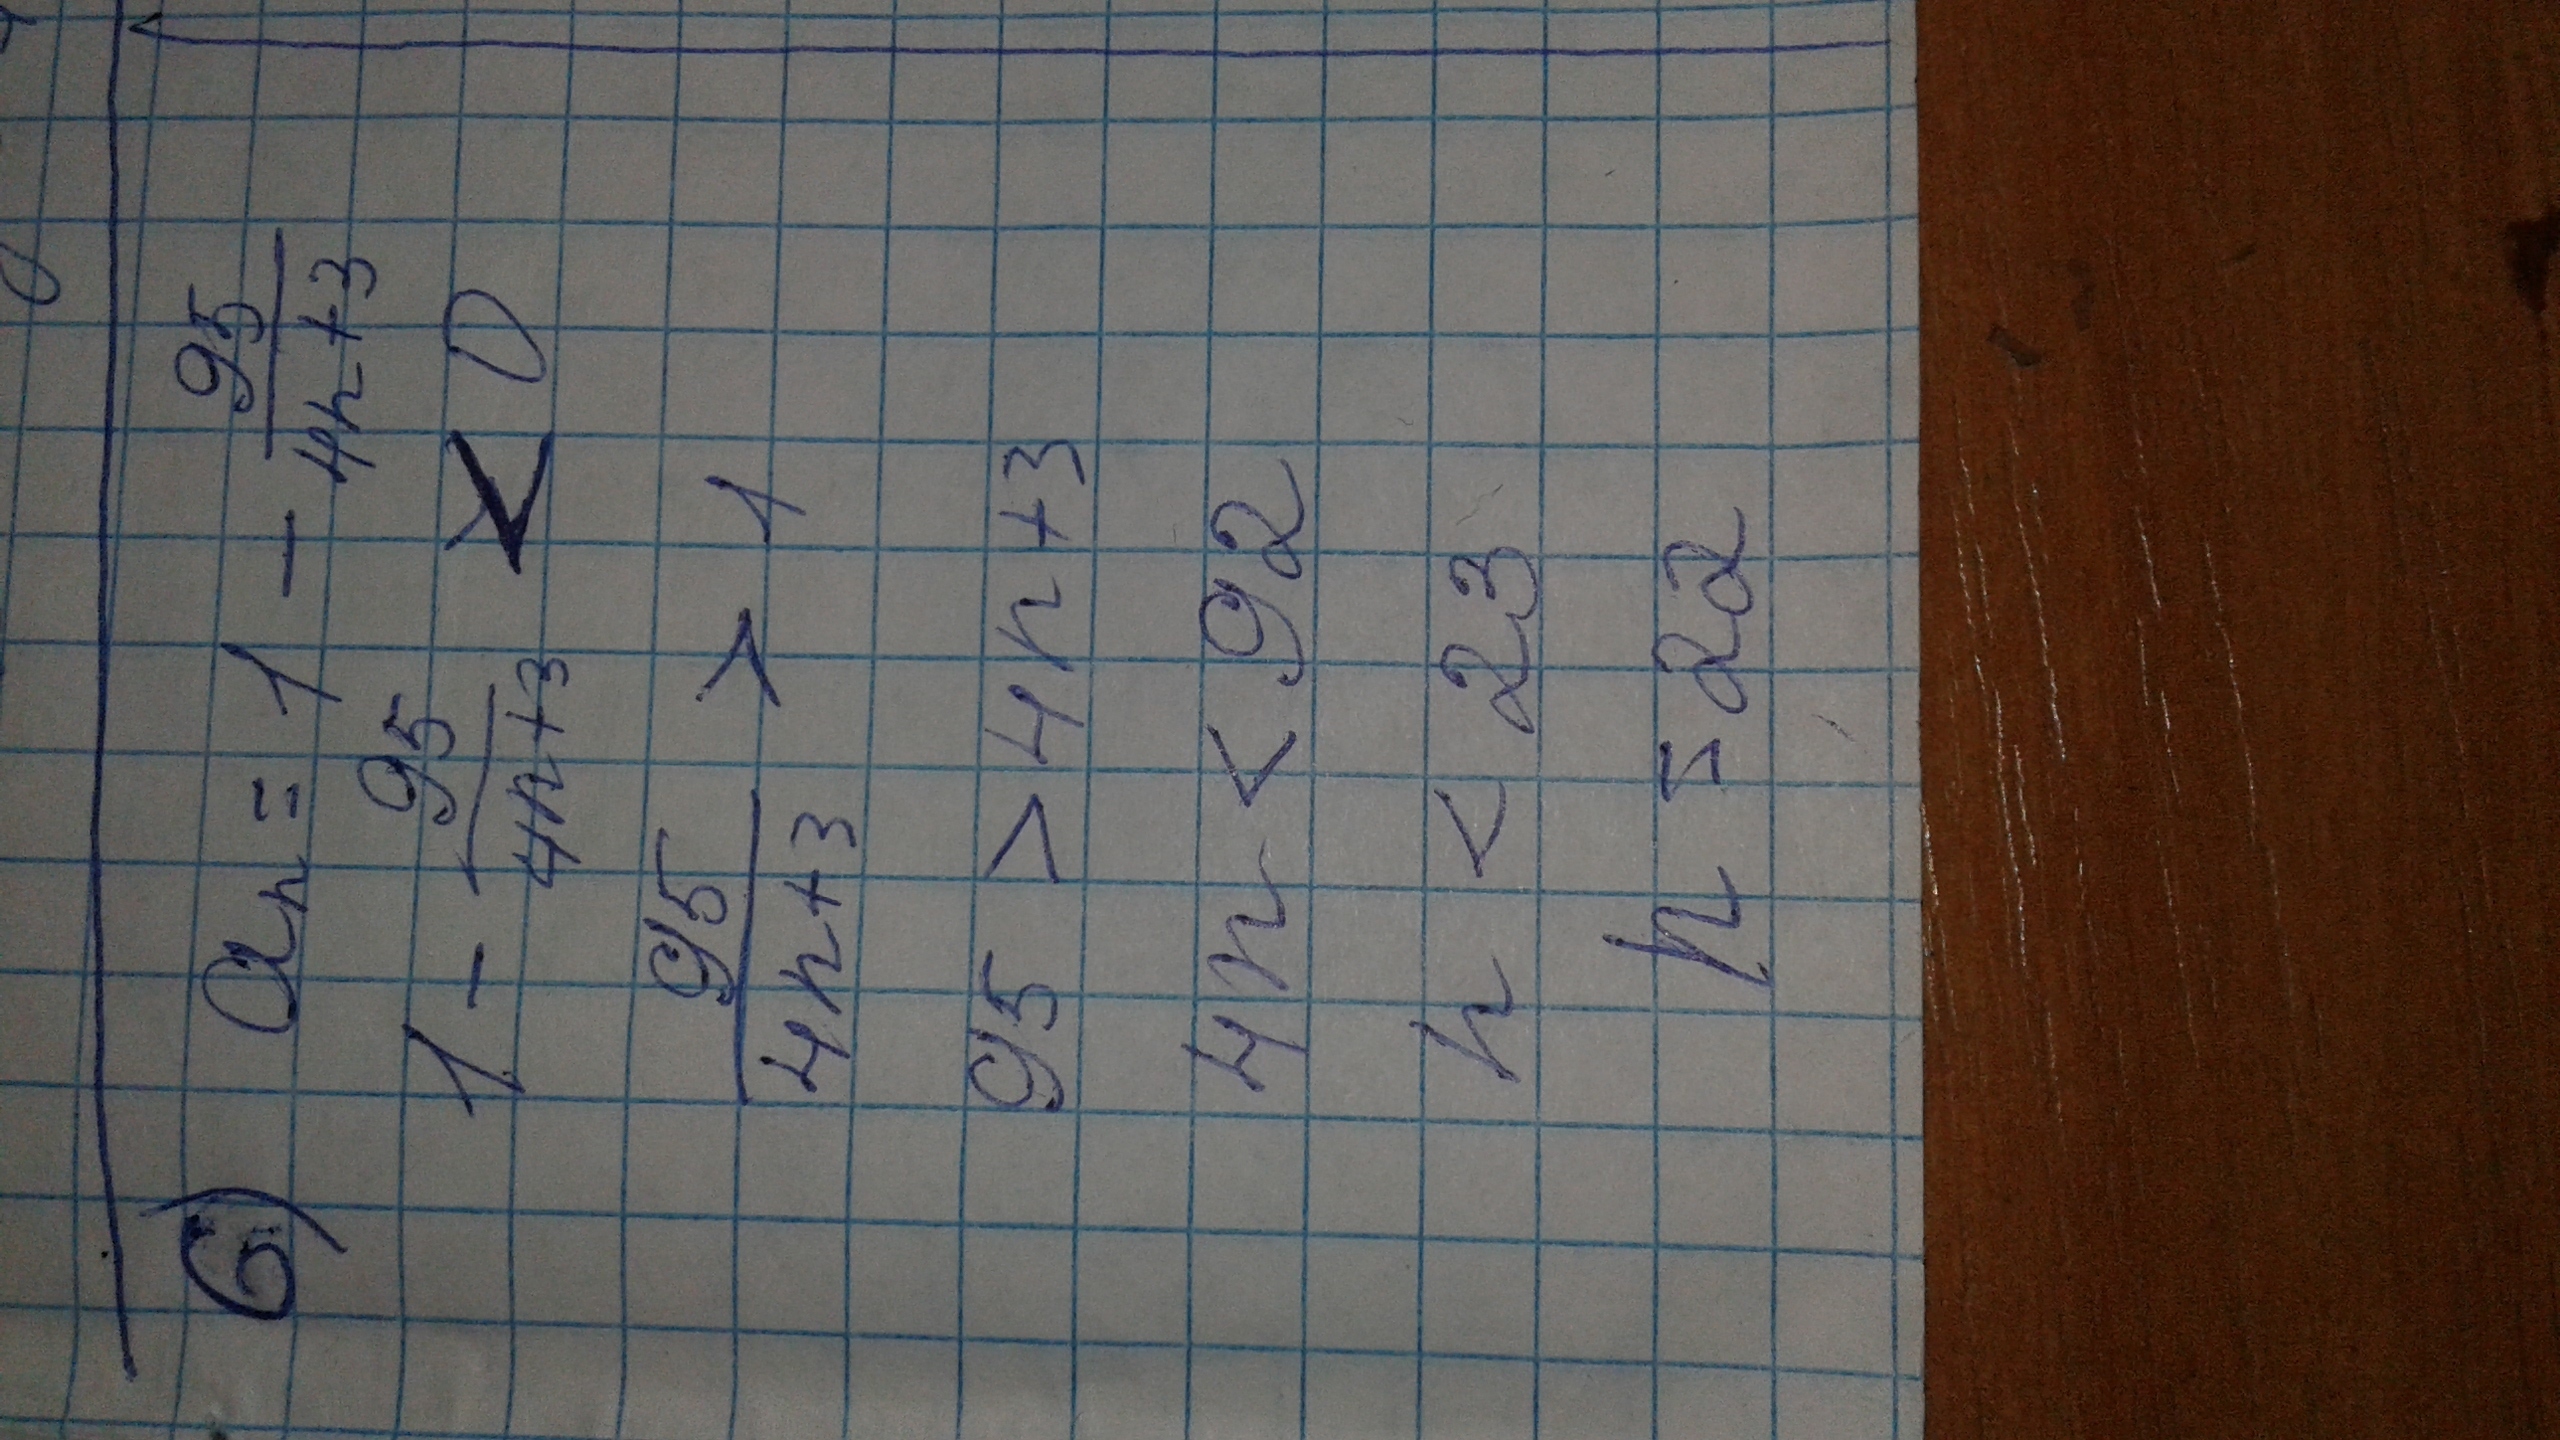 6) an = 1 - 95/(4n+3)
1 - 95/(4n+3) < 0
95/(4n+3) > 1
95 > 4n+3
4n < 92
n < 23
n = 22